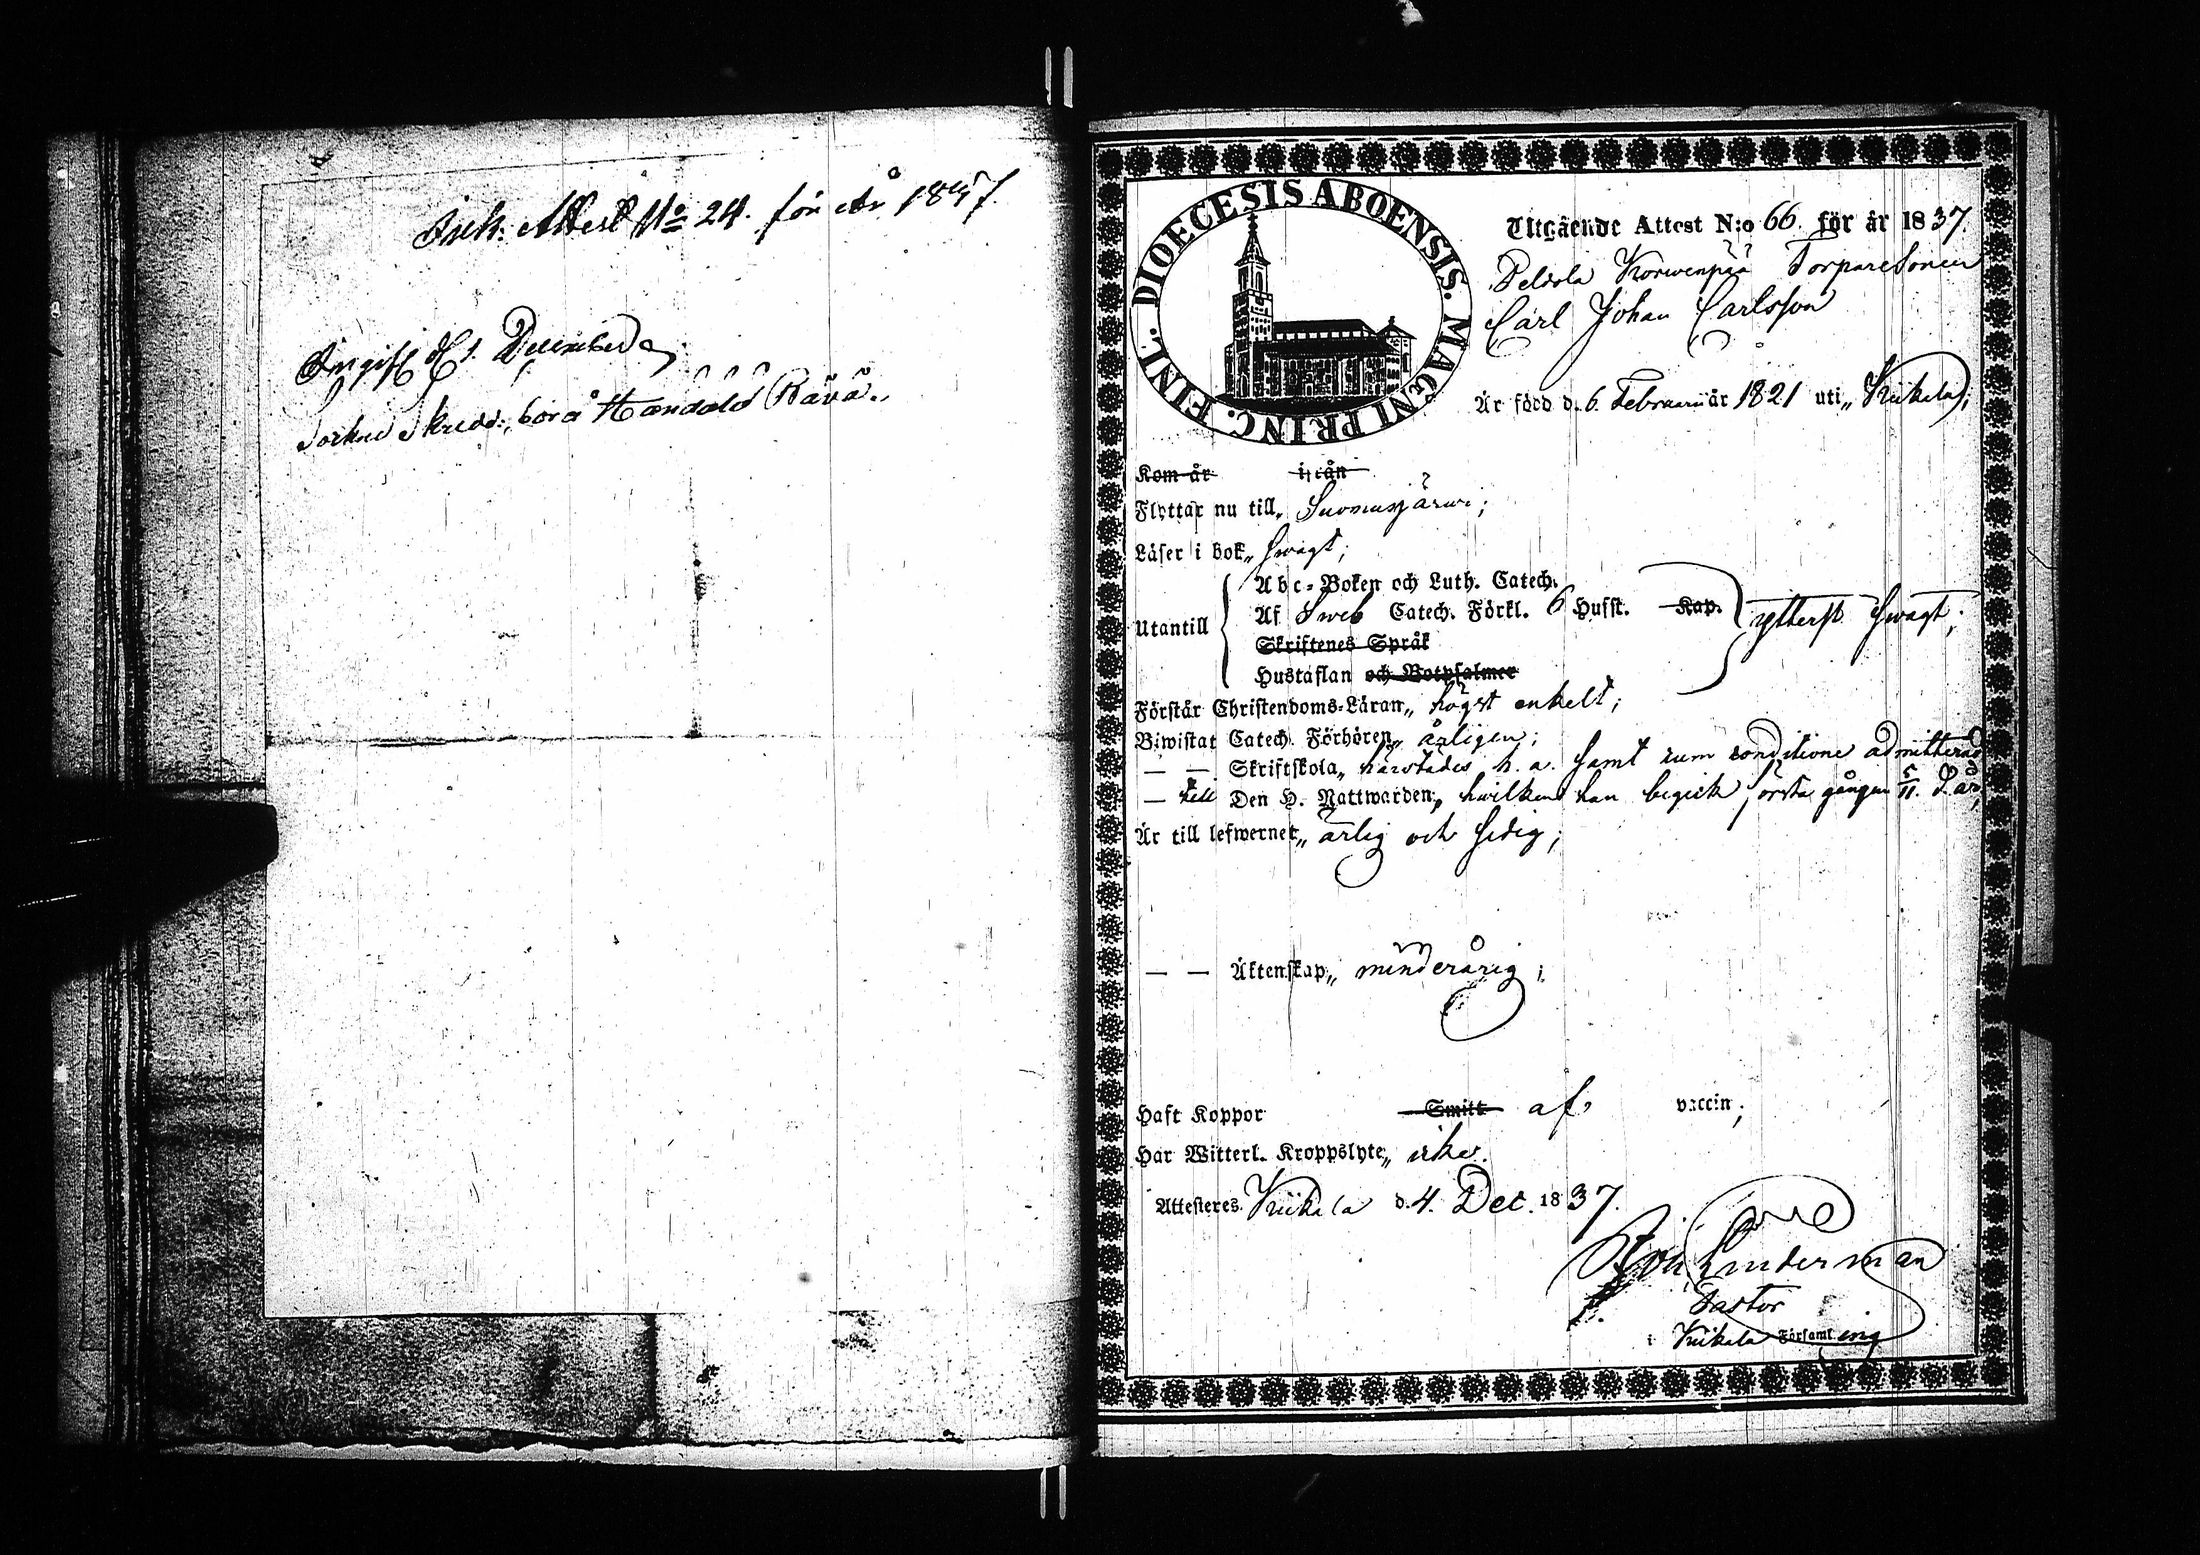 Ink: Attest No 24. för År 1837.
Ingift d. 1. December
Socken Skredd: bor å Handala Rävä.
DIOECESIS ABOENSIS. MAGNI PRINC. FINL.
Utgående Attest N:o 66. för år 1837.
Peldola Korwenpää Torparesonen
Carl Johan Carlsson
Är född d. 6. Februarii år 1821 uti „ Kiikala;
Kom år ifrån
Flyttar nu till „ Suomusjärwi;
Läser i bok „ swagt;
Utantill
Abc-Boken och Luth. Catech.
Af Sweb Catech. Förkl. 6 Hufst. Kap.
ytterst swagt;
Skriftenes Språk
Hustaflan och Botpsalmer
Förstår Christendoms-Läran „ högst enkelt;
Biwistat Catech. Förhören „ årligen;
— — Skriftskola „ härstädes h. a. samt cum conditione admitterad
— till Den H. Nattwarden „ hwilken han begick första gången 5/11 d. år;
Är till lefwernet „ ärlig och sedig;
— — Äktenskap „ minderårig;
Haft Koppor Smitt af vaccin;
Har Witterl. Kroppslyte „ icke.
Attesteres. Kiikala d. 4. Dec. 1837.
Linderman
Pastor
i Kiikala Församling